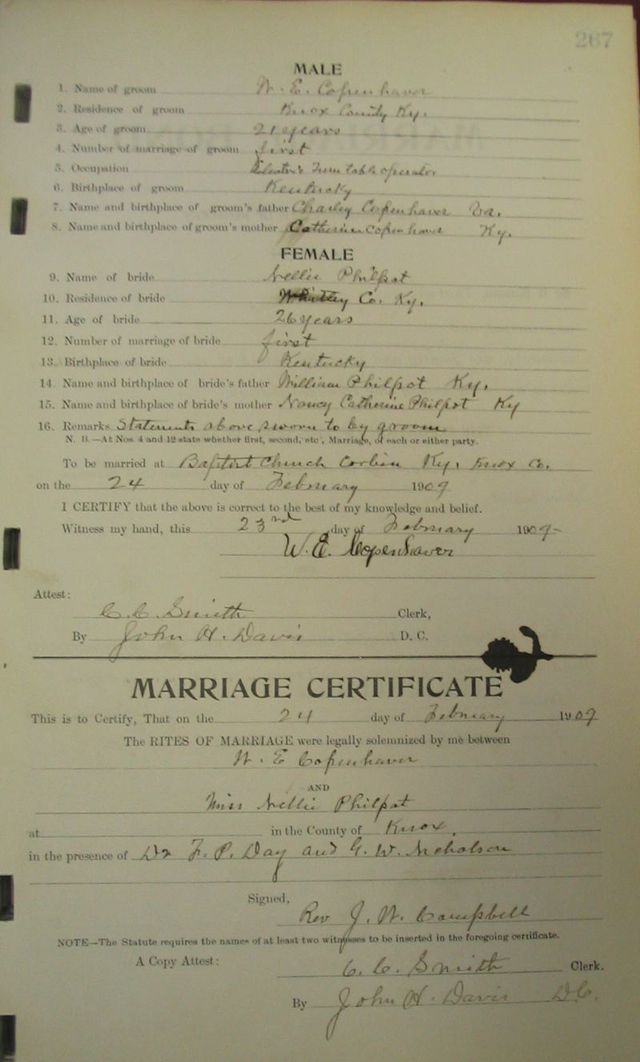 267
MALE
1. Name of groom W. E. Copenhaver
2. Residence of groom Knox County Ky.
3. Age of groom 21 years
4. Number of marriage of groom first
5. Occupation Turn table operator
6. Birthplace of groom Kentucky
7. Name and birthplace of groom's father Charley Copenhaver Va.
8. Name and birthplace of groom's mother Catherine Copenhaver Ky.
FEMALE
9. Name of bride Nellie Philpot
10. Residence of bride Whitley Co. Ky.
11. Age of bride 26 years
12. Number of marriage of bride first
13. Birthplace of bride Kentucky
14. Name and birthplace of bride's father William Philpot Ky.
15. Name and birthplace of bride's mother Nancy Catherine Philpot Ky
16. Remarks Statements above sworn to by groom
N. B.—At Nos. 4 and 12 state whether first, second, etc., Marriage, of each or either party.
To be married at Baptist Church Corbin Ky. Knox Co.
on the 24 day of February 1909
I CERTIFY that the above is correct to the best of my knowledge and belief.
Witness my hand, this 23rd day of February 1909-
W. E. Copenhaver
Attest:
C. C. Smith Clerk,
By John H. Davis D. C.
MARRIAGE CERTIFICATE
This is to Certify, That on the 24 day of February 1909
The RITES OF MARRIAGE were legally solemnized by me between
W. E Copenhaver
AND
Miss Nellie Philpot
at in the County of Knox.
in the presence of Dr F. P. Day and G. W. Nicholson
Signed,
Rev J. W. Campbell
NOTE—The Statute requires the names of at least two witnesses to be inserted in the foregoing certificate.
A Copy Attest: C. C. Smith Clerk.
By John H. Davis D.C.